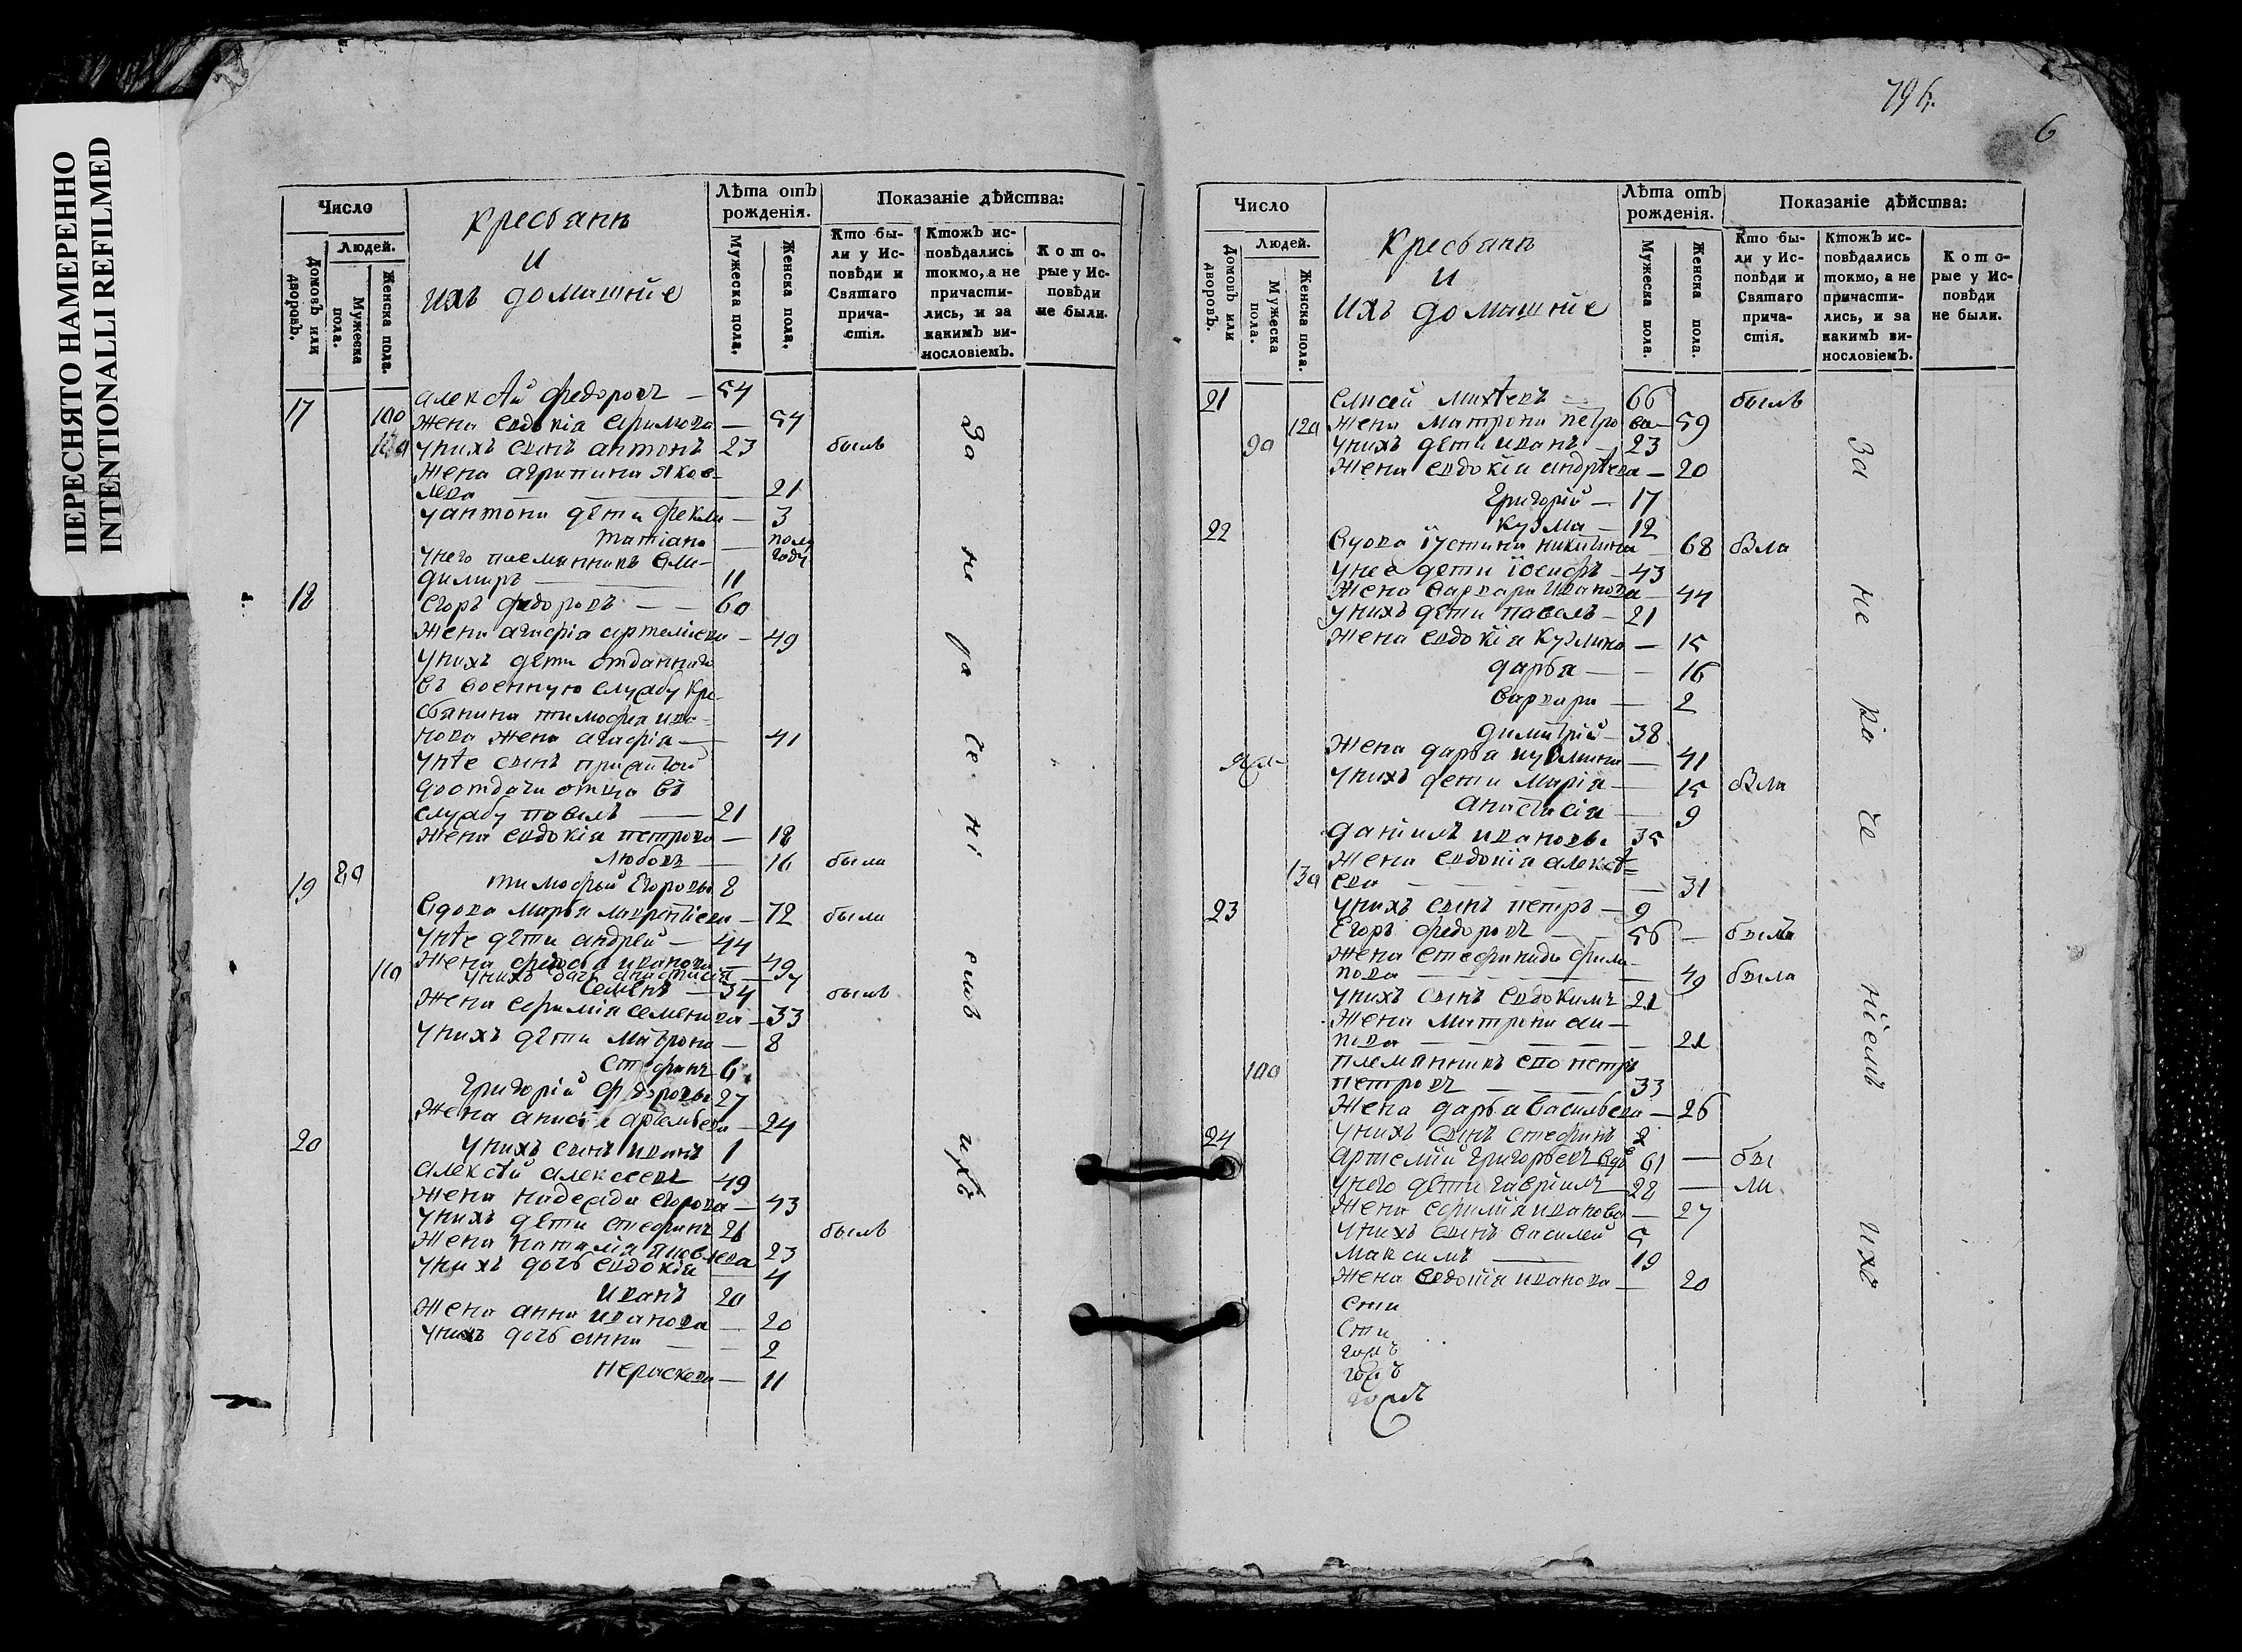 ПЕРЕСНЯТО НАМЕРЕННО
INTENTIONALLI REFILMED
Число
Людей.
Домовъ или дворовъ.
Мужеска пола.
Женска пола.
Крестьяне
И
ихъ домашніе
Лѣта отъ рожденія.
Мужеска пола.
Женска пола.
Показаніе дѣйства:
Кто были у Исповѣди и Святаго причастія.
Ктожъ исповѣдались токмо, а не причастились, и за какимъ винословіемъ.
Которые у Исповѣди не были.
17 Алексѣй Федоровъ — 54
100 Жена Евдокія — 54
У нихъ сынъ Антонъ 23 былъ
Жена Агрипина Яков-
лева — 21
У Антона дѣти Фекла — 3
Татіана — полъ году
У него племянникъ Вла-
димиръ — 11
18 Егоръ Федоровъ — 60
Жена Агафія Артеміева — 49
У нихъ дѣти отданнаго
въ военную службу кре-
стьянина Тимофея Ива-
нова жена Агафія — 41
У нее сынъ прижитой
до отдачи отца въ
службу Павелъ — 21
Жена Евдокія Петрова — 18
Любовь — 16 была
Тимофей Егоровъ 8
19 Вдова Марья Лаврентіева — 72 была
У нее дѣти Андрей — 44
Жена Федосья Иванова — 49
У нихъ дочь Анастасія — 7
Семенъ — 34 былъ
Жена Ефимія Семенова — 33
У нихъ дѣти Матрона — 8
Стефанъ 6
Григорій Федоровъ 27
Жена Артемьева — 24
У нихъ сынъ Иванъ 1
20 Алексѣй Алексеевъ 49
Жена Надежда Егорова — 43
У нихъ дѣти Стефанъ 21 былъ
Жена Наталія Яковлева 23
У нихъ дочь Евдокія — 4
Иванъ 20
Жена Анна Иванова — 20
У нихъ дочь Анна — 2
Параскева — 11
За не ра че ні емъ ихъ
796.
6
Число
Людей.
Домовъ или дворовъ.
Мужеска пола.
Женска пола.
Крестьяне
И
Ихъ домашніе
Лѣта отъ рожденія.
Мужеска пола.
Женска пола.
Показаніе дѣйства:
Кто были у Исповѣди и Святаго причастія.
Ктожъ исповѣдались токмо, а не причастились, и за какимъ винословіемъ.
Которые у Исповѣди не были.
21 Елисей Михѣевъ — 66 былъ
Жена Матрона Петрова — 59
У нихъ дѣти Иванъ — 23
Жена Евдокія Андрѣева — 20
Григорій — 17
Кузма — 12
22 Вдова Іустина Никитина 68 была
У нее дети Іосифъ — 43
Жена Варвара Иванова — 44
У нихъ дѣти Павелъ — 21
Жена Евдокія Кузмина — 15
Дарья — 16
Варвара — 2
Димитрій — 38
Жена Дарья Кузмина — 41
У нихъ дети Марія — 15 была
Анастасія — 9
Даніилъ Ивановъ 35
Жена Евдокія Алексѣ-
ева — 31
У нихъ сынъ Петръ — 9
23 Егоръ Федоровъ — 56 — былъ
Жена Стефанида Фила-
това — 49 была
У нихъ сынъ Евдокимъ 21
Жена Матрона
— 21
Племянникъ его Петръ
Петровъ — 33
Жена Дарья Васильева — 26
У нихъ сынъ Стефанъ 2
24 Артемій Григорьевъ вдовъ 61 — бы
У него дѣти Гавріилъ — 28 — ли.
Жена Ефимія Иванова — 27
У нихъ сынъ Василей 5
Максимъ — 19
Жена Евдокія Иванова — 20
За не ра че ніемъ ихъ